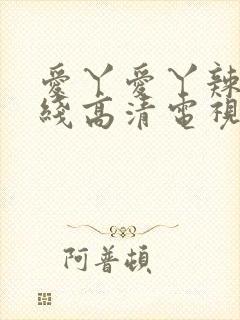 愛丫愛丫辣
綫高清電視
阿普頓